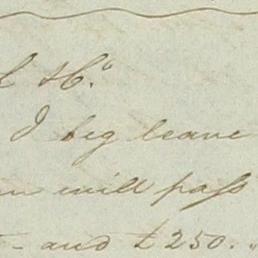 & Co
I beg leave
will pass
- and £250.